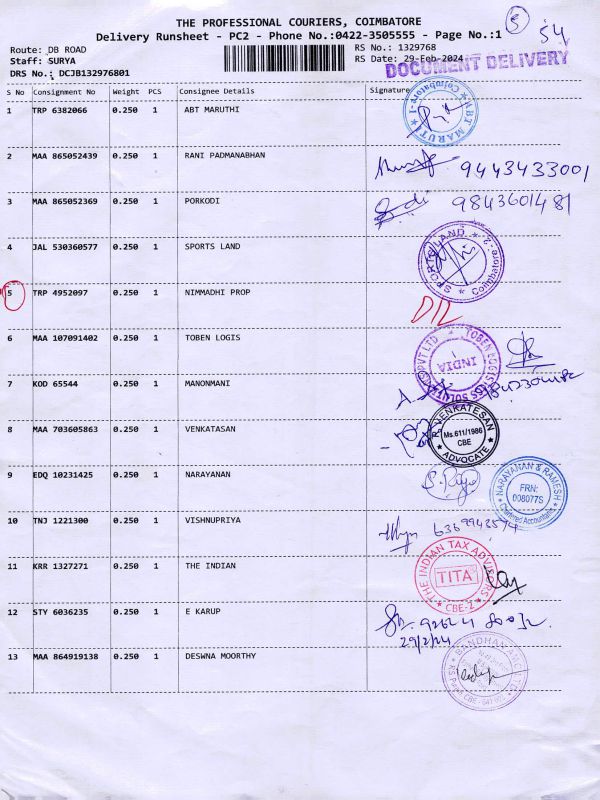 5
54
THE PROFESSIONAL COURIERS, COIMBATORE
Delivery Runsheet - PC2 - Phone No.:0422-3505555 - Page No.:1
Route: DB ROAD
RS No.: 1329768
Staff: SURYA
RS Date: 29-Feb-2024
DRS No.: DCJB132976801
DOCUMENT DELIVERY
S No Consignment No Weight PCS Consignee Details Signature
1 TRP 6382066 0.250 1 ABT MARUTHI
ABT MARUTI Coimbatore-1
2 MAA 865052439 0.250 1 RANI PADMANABHAN
9443433001
3 MAA 865052369 0.250 1 PORKODI
9843601481
4 JAL 530360577 0.250 1 SPORTS LAND
SPORTS LAND Coimbatore-2
5 TRP 4952097 0.250 1 NIMMADHI PROP
D/L
6 MAA 107091402 0.250 1 TOBEN LOGIS
TOBEN LOGISTICS PVT LTD INDIA
7 KOD 65544 0.250 1 MANONMANI
8 MAA 703605863 0.250 1 VENKATASAN
R. VENKATESAN Ms.611/1986 CBE ADVOCATE
9 EDQ 10231425 0.250 1 NARAYANAN
NARAYANAN & RAMESH FRN: 008077S Chartered Accountants
10 TNJ 1221300 0.250 1 VISHNUPRIYA
6369942574
11 KRR 1327271 0.250 1 THE INDIAN
THE INDIAN TAX ADVISORS TITA CBE-2
12 STY 6036235 0.250 1 E KARUP
29/2/24
13 MAA 864919138 0.250 1 DESWNA MOORTHY